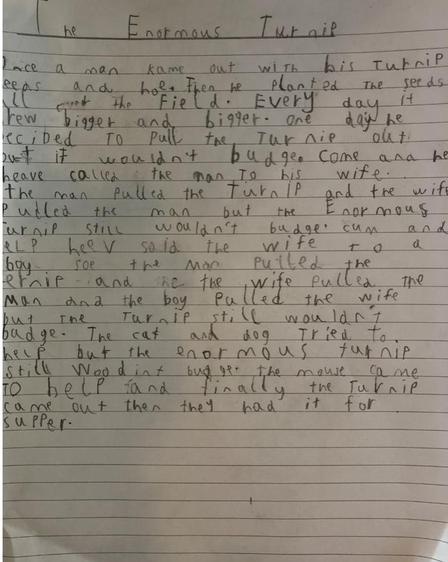 The Enormous Turnip
Once a man kame out with his Turnip
seeds and hoe. Then he planted the seeds
all the Field. Every day it
grew bigger and bigger. one day he
decibed To Pull the Turnip out
but it wouldn't budge. Come and he
heave called the man To his wife.
the man Pulled the Turnip and the wife
Pulled the man but the Enormous
Turnip still wouldn't budge. cum and
help heev said the wife to a
boy soe the Man Pulled the
ternip and the wife Pulled The
Man and the boy Pulled the wife
but The Turnip still wouldn't
budge. The cat and dog Tried to
help but the enormous turnip
still woodint budge. the mouse came
TO help and finally the Turnip
came out then they had it for
supper.